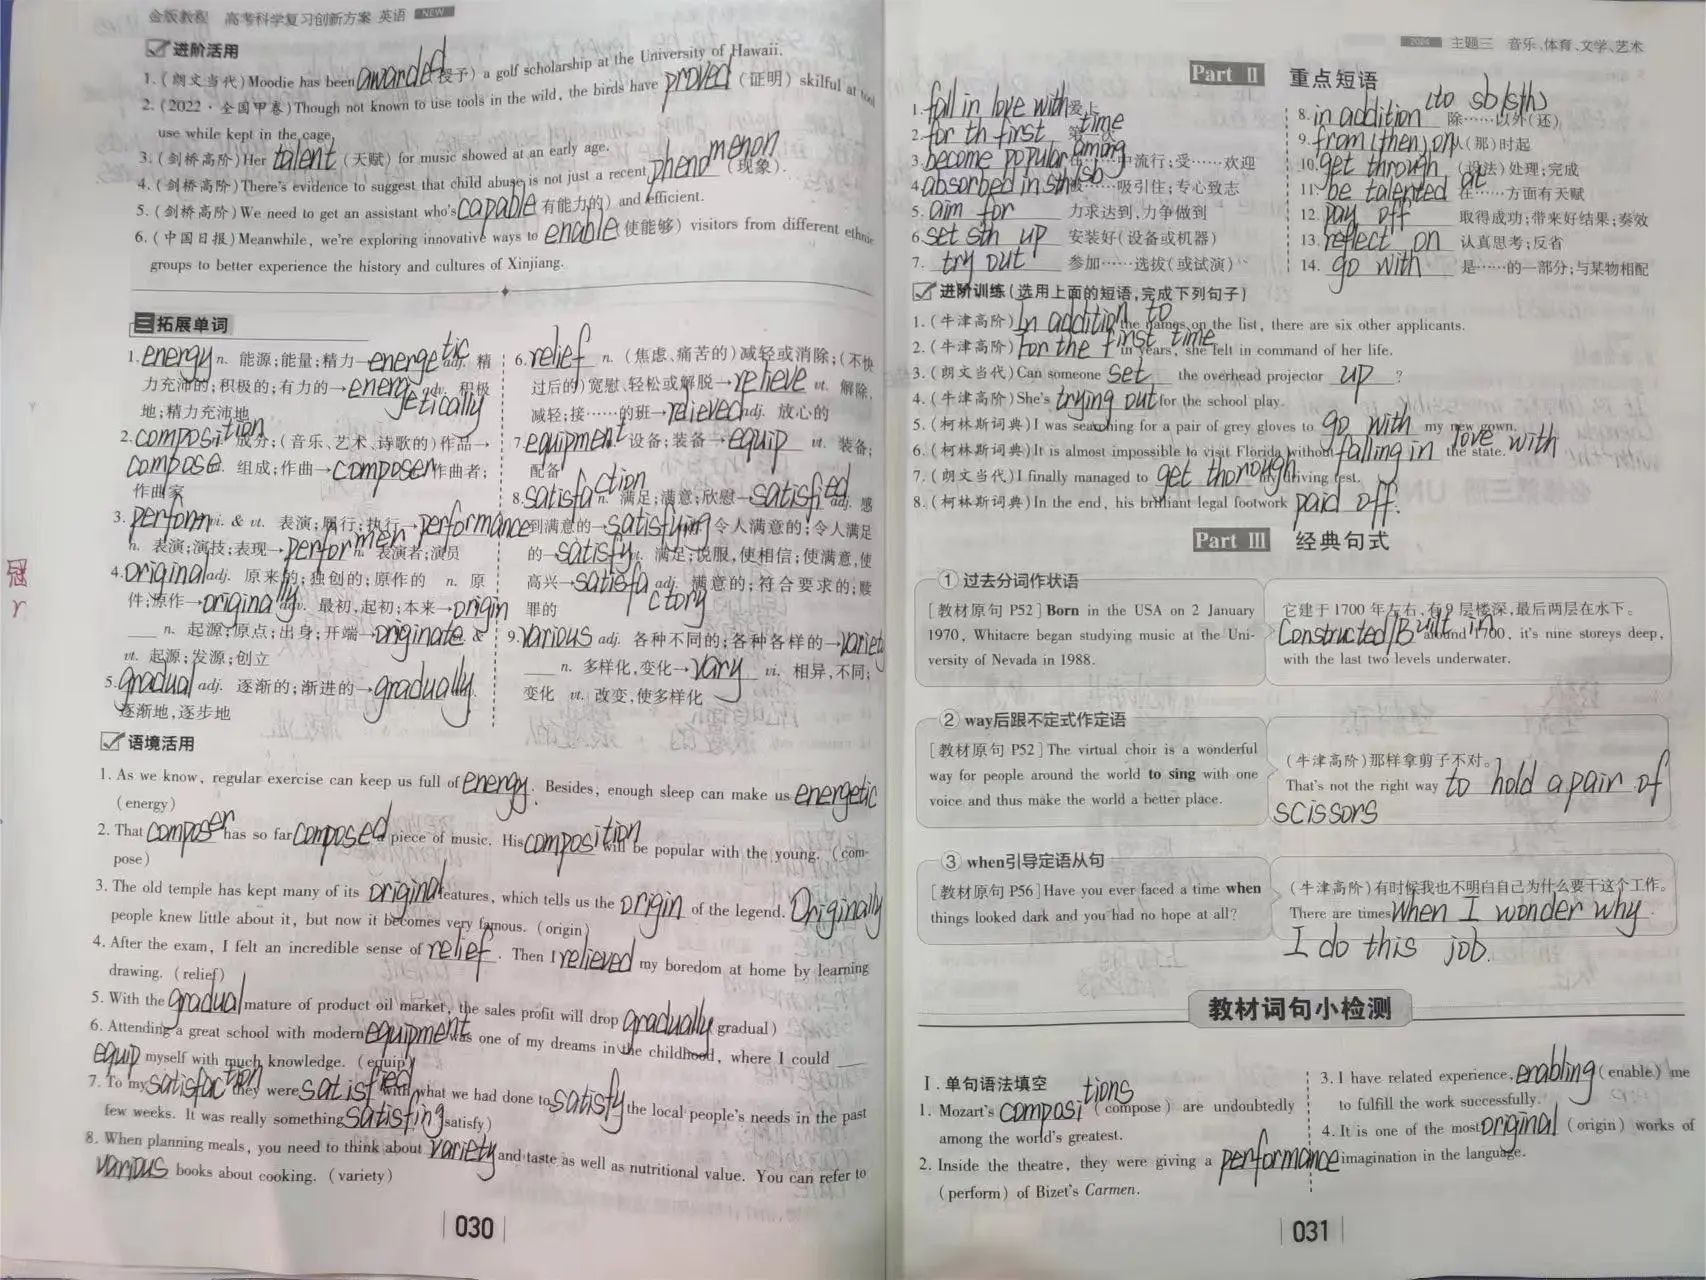 金版教程 高考科学复习创新方案 英语 NEW
进阶活用
1. (朗文当代) Moodie has been awarded (授予) a golf scholarship at the University of Hawaii.
2. (2022·全国甲卷) Though not known to use tools in the wild, the birds have proved (证明) skilful at tool
use while kept in the cage.
3. (剑桥高阶) Her talent (天赋) for music showed at an early age.
4. (剑桥高阶) There's evidence to suggest that child abuse is not just a recent phenomenon (现象).
5. (剑桥高阶) We need to get an assistant who's capable (有能力的) and efficient.
6. (中国日报) Meanwhile, we're exploring innovative ways to enable (使能够) visitors from different ethnic
groups to better experience the history and cultures of Xinjiang.
三 拓展单词
1. energy n. 能源;能量;精力→energetic adj. 精
力充沛的;积极的;有力的→energetically adv. 积极
地;精力充沛地
2. composition 成分;(音乐、艺术、诗歌的)作品→
compose. 组成;作曲→composer 作曲者;
作曲家
3. perform vi. & vt. 表演;履行;执行→performance
n. 表演;演技;表现→performer n. 表演者;演员
4. original adj. 原来的;独创的;原作的 n. 原
件;原作→originally adv. 最初,起初;本来→origin
n. 起源;原点;出身;开端→originate &
vt. 起源;发源;创立
5. gradual adj. 逐渐的;渐进的→gradually
逐渐地,逐步地
6. relief n. (焦虑、痛苦的)减轻或消除;(不快
过后的)宽慰、轻松或解脱→relieve vt. 解除,
减轻;接……的班→relieved adj. 放心的
7. equipment 设备;装备→equip vt. 装备;
配备
8. satisfaction n. 满足;满意;欣慰→satisfied adj. 感
到满意的→satisfying 令人满意的;令人满足
的→satisfy vt. 满足;说服,使相信;使满意,使
高兴→satisfactory adj. 满意的;符合要求的;赎
罪的
9. various adj. 各种不同的;各种各样的→variety
n. 多样化,变化→vary vi. 相异,不同;
变化 vt. 改变,使多样化
语境活用
1. As we know, regular exercise can keep us full of energy. Besides, enough sleep can make us energetic
(energy)
2. That composer has so far composed a piece of music. His composition will be popular with the young. (com-
pose)
3. The old temple has kept many of its original features, which tells us the origin of the legend. Originally
people knew little about it, but now it becomes very famous. (origin)
4. After the exam, I felt an incredible sense of relief. Then I relieved my boredom at home by learning
drawing. (relief)
5. With the gradual mature of product oil market, the sales profit will drop gradually gradual)
6. Attending a great school with modern equipment was one of my dreams in the childhood, where I could
equip myself with much knowledge. (equip)
7. To my satisfaction they were satisfied with what we had done to satisfy the local people's needs in the past
few weeks. It was really something satisfing satisfy)
8. When planning meals, you need to think about variety and taste as well as nutritional value. You can refer to
various books about cooking. (variety)
030
主题三 音乐、体育、文学、艺术
Part Ⅱ 重点短语
1. fall in love with 爱上
2. for th first time 第一次
3. become popular among 在……中流行;受……欢迎
4. absorbed in sth/sb 被……吸引住;专心致志
5. aim for 力求达到,力争做到
6. set sth up 安装好(设备或机器)
7. try out 参加……选拔(或试演)
8. in addition (to sb/sth) 除……以外(还)
9. from (then) on 从(那)时起
10. get through (设法)处理;完成
11. be talented at 在……方面有天赋
12. pay off 取得成功;带来好结果;奏效
13. reflect on 认真思考;反省
14. go with 是……的一部分;与某物相配
进阶训练(选用上面的短语,完成下列句子)
1. (牛津高阶) In addition to the names on the list, there are six other applicants.
2. (牛津高阶) For the first time in years, she felt in command of her life.
3. (朗文当代) Can someone set the overhead projector up ?
4. (牛津高阶) She's trying out for the school play.
5. (柯林斯词典) I was searching for a pair of grey gloves to go with my new gown.
6. (柯林斯词典) It is almost impossible to visit Florida without falling in love with the state.
7. (朗文当代) I finally managed to get thorough my driving test.
8. (柯林斯词典) In the end, his brilliant legal footwork paid off.
Part Ⅲ 经典句式
① 过去分词作状语
[教材原句 P52] Born in the USA on 2 January
1970, Whitacre began studying music at the Uni-
versity of Nevada in 1988.
它建于 1700 年左右,有 9 层楼深,最后两层在水下。
Constructed/Built in around 1700, it's nine storeys deep,
with the last two levels underwater.
② way后跟不定式作定语
[教材原句 P52] The virtual choir is a wonderful
way for people around the world to sing with one
voice and thus make the world a better place.
(牛津高阶) 那样拿剪子不对。
That's not the right way to hold a pair of
scissors
③ when引导定语从句
[教材原句 P56] Have you ever faced a time when
things looked dark and you had no hope at all?
(牛津高阶) 有时候我也不明白自己为什么要干这个工作。
There are times when I wonder why
I do this job.
教材词句小检测
Ⅰ. 单句语法填空
1. Mozart's compositions (compose) are undoubtedly
among the world's greatest.
2. Inside the theatre, they were giving a performance
(perform) of Bizet's Carmen.
3. I have related experience, enabling (enable) me
to fulfill the work successfully.
4. It is one of the most original (origin) works of
imagination in the language.
031
冠
r